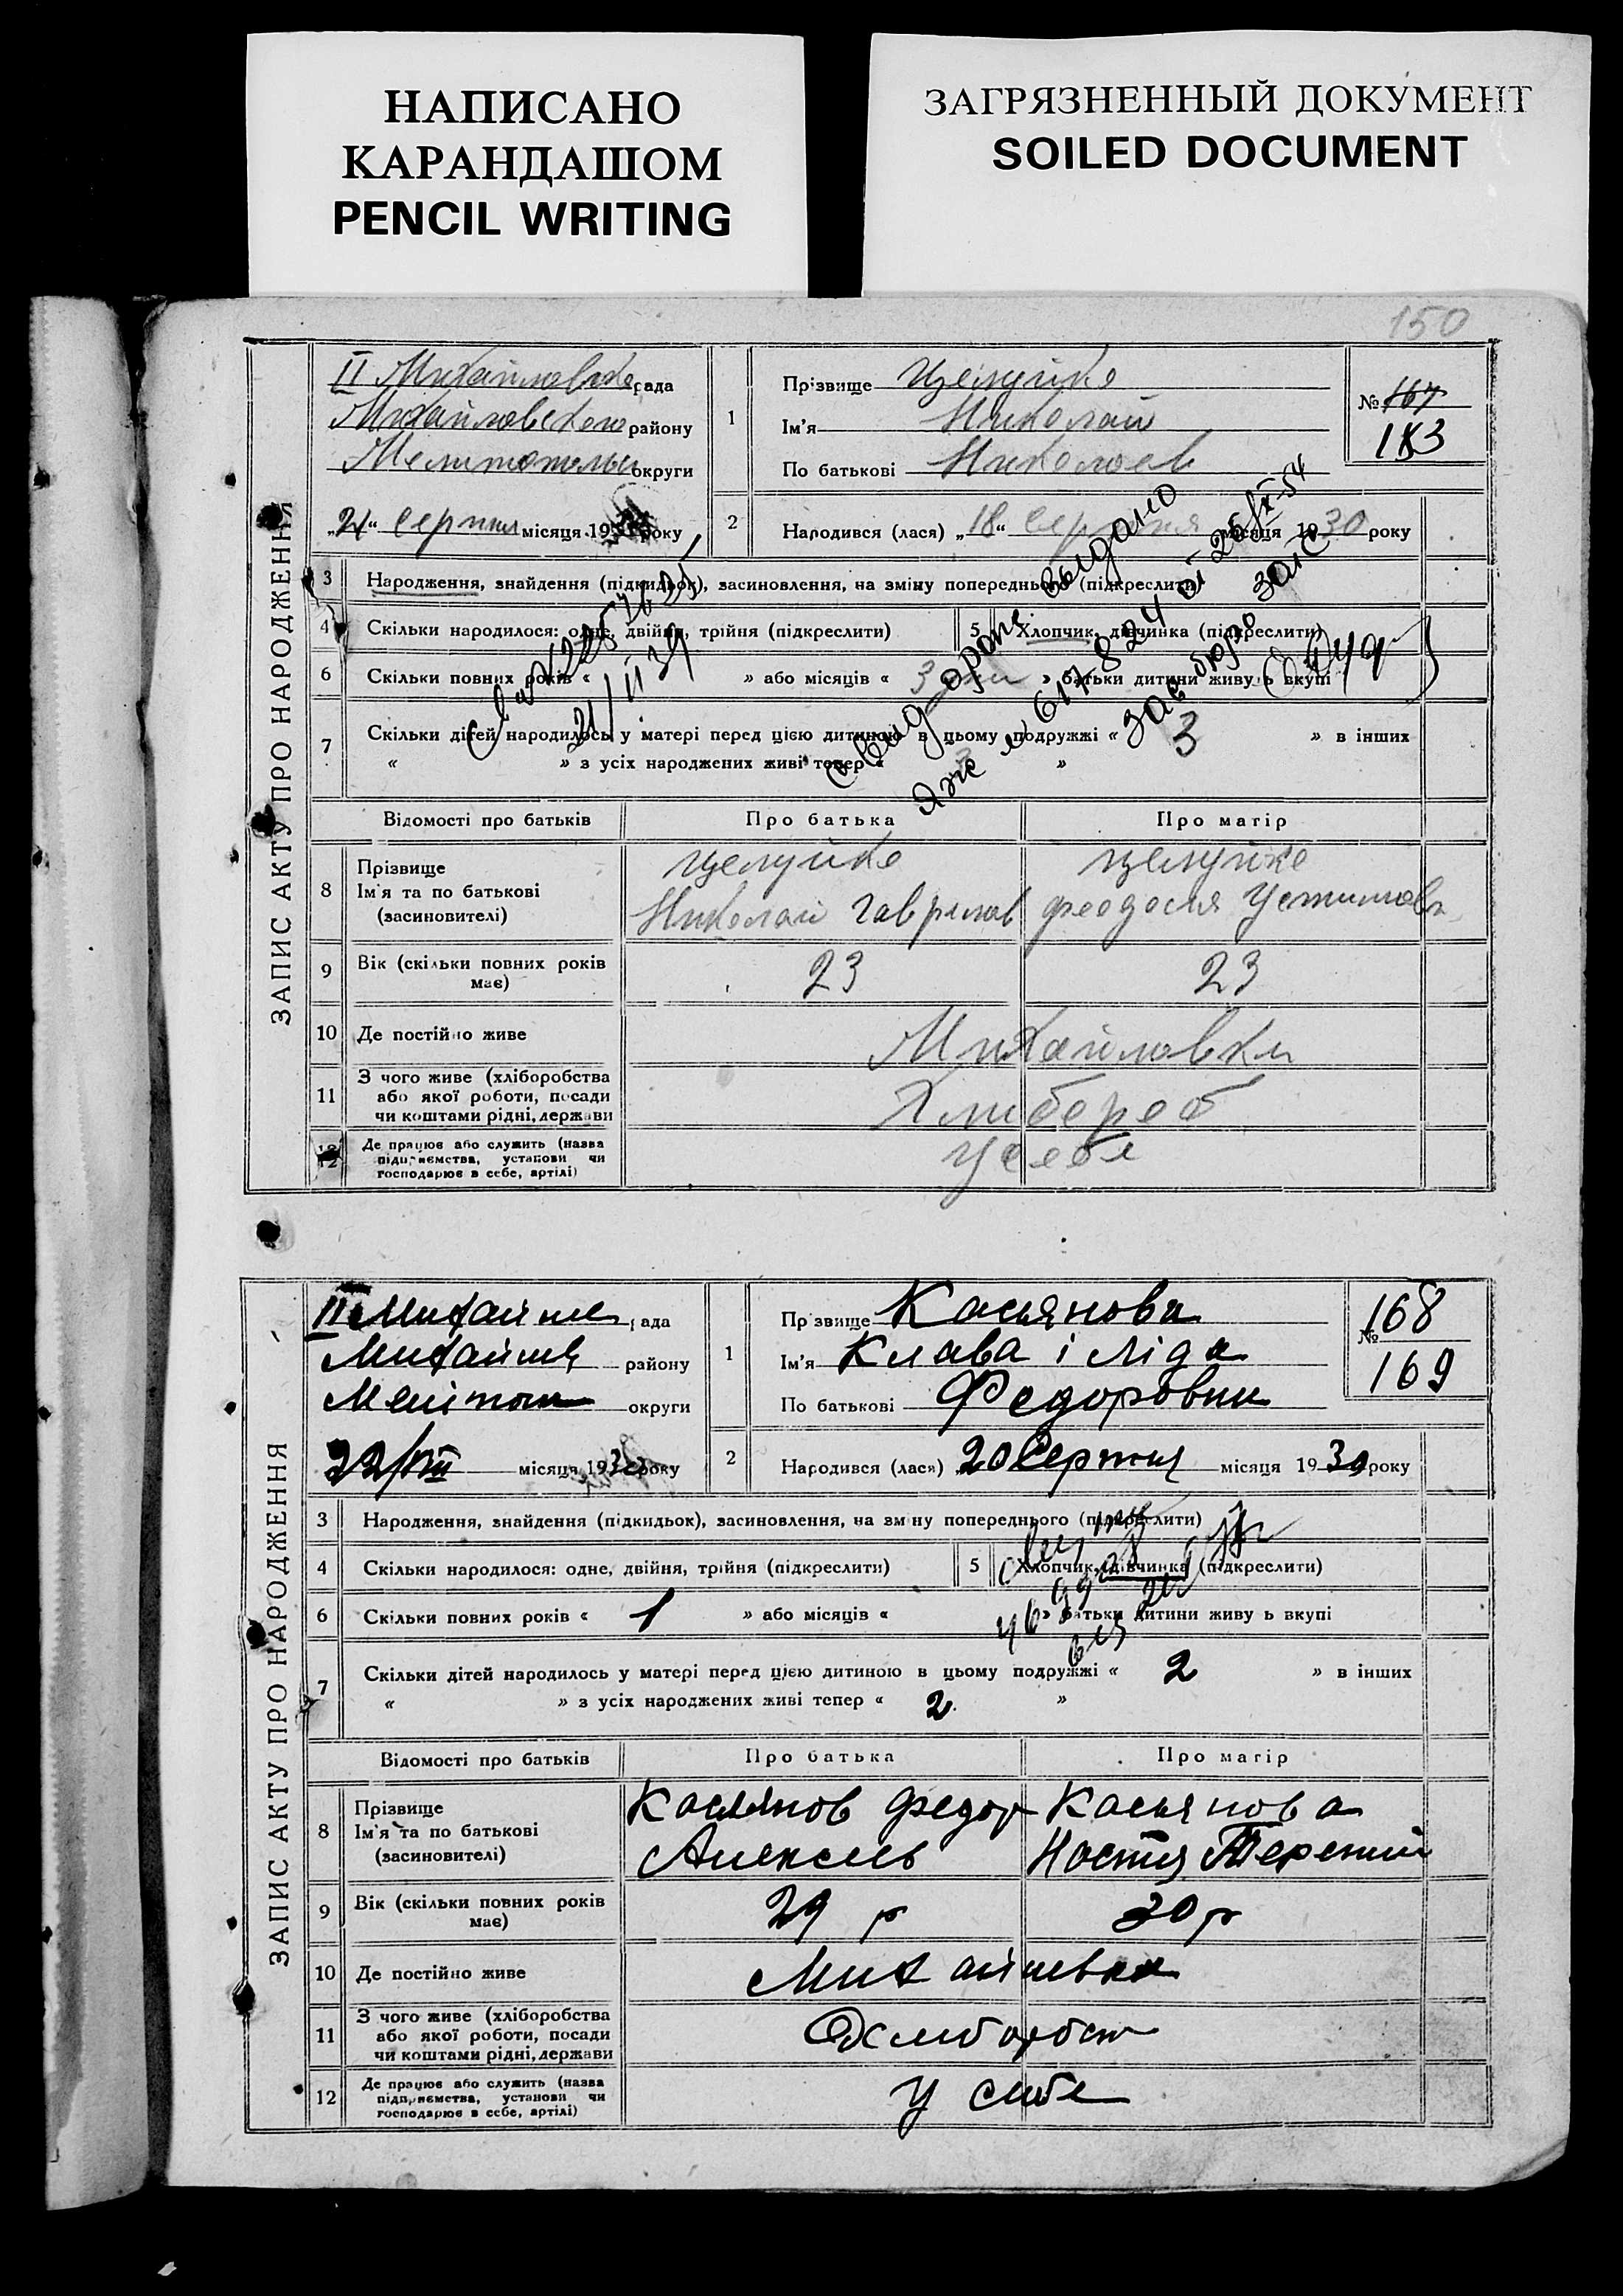 НАПИСАНО
КАРАНДАШОМ
PENCIL WRITING
ЗАГРЯЗНЕННЫЙ ДОКУМЕНТ
SOILED DOCUMENT
150
ЗАПИС АКТУ ПРО НАРОДЖЕННЯ
II Михайловська рада
Михайловського району
Мелитопольс округи
„21“ серпня місяця 19 року
1
Прізвище Целуйко
Ім'я Николай
По батькові Николаев
№ 167
183
2
Народився (лася) „18“ Серпня місяця 1930 року
3
Народження, знайдення (підкидьок), засиновлення, на зміну попереднього (підкреслити)
4
Скільки народилося: одне, двійня, трійня (підкреслити)
5
Хлопчик, дівчинка (підкреслити)
6
Скільки повних років « » або місяців « 3 дни » батьки дитини живуть вкупі
7
Скільки дітей народилось у матері перед цією дитиною в цьому подружжі « 3 » в інших
« » з усіх народжених живі тепер « 3 »
21/II 39
Свид. выдано
ЯЖ № 617824 от 25/IX-54
зав бюро загс
Відомості про батьків
Про батька
Про матір
8
Прізвище
Ім'я та по батькові
(засновителі)
Целуйко
Николай Гаврилов
Целуйко
Феодосия Устимовн
9
Вік (скільки повних років
має)
23
23
10
Де постійно живе
Михайловки
11
З чого живе (хліборобства
або якої роботи, посади
чи коштами рідні, держави
Хлибероб
12
Де працює або служить (назва
підприємства, установи чи
господарює в себе, артілі)
У себе
ЗАПИС АКТУ ПРО НАРОДЖЕННЯ
II Михайлов рада
Михайлів району
Мелітоп округи
22/VIII місяця 1930 року
1
Прізвище Касьянова
Ім'я Клава і Ліда
По батькові Федоровни
168
№
169
2
Народився (лася) „20 Серпня місяця 1930 року
3
Народження, знайдення (підкидьок), засиновлення, на зміну попереднього (підкреслити)
4
Скільки народилося: одне, двійня, трійня (підкреслити)
5
Хлопчик, дівчинка (підкреслити)
6
Скільки повних років « 1 » або місяців « » батьки дитини живуть вкупі
7
Скільки дітей народилось у матері перед цією дитиною в цьому подружжі « 2 » в інших
« » з усіх народжених живі тепер « 2 »
Відомості про батьків
Про батька
Про матір
8
Прізвище
Ім'я та по батькові
(засиновителі)
Касьянов Федор
Алексеев
Касьянова
Настя Терентий
9
Вік (скільки повних років
має)
29 р
30 р
10
Де постійно живе
Михайлівка
11
З чого живе (хліборобства
або якої роботи, посади
чи коштами рідні, держави
Хлиборобст
12
Де працює або служить (назва
підприємства, установи чи
господарює в себе, артілі)
У себе